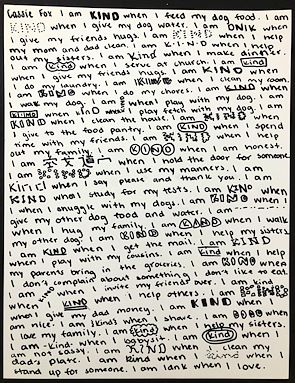 Cassie Fox I am KIND when I feed my dog food. I am
KIND when I give my dog water. I am KIND when
I give my friends hugs. I am KIND when I help
my mom and dad clean. I am KIND when I help
out my sisters. I am Kind when I make dinner.
I am kind when I serve at church. I am kind
when I give my friends hugs. I am KIND when
I do my laundry. I am KIND when I clean my room.
I am KIND when I do my chores. I am KIND when I
walk my dog. I am when I play with my dog. I am
kind when I play fetch with my dog. I am
KIND when I clean the house. I am KIND when
I give to the food pantry. I am KIND when I spend
time with my friends. I am KIND when I help
out my family. I am KIND when I am honest.
I am when I hold the door for someone.
I am KIND when I use my manners. I am
Kind when I say please and thank you. I am
KIND when I study for my tests. I am KIND when
I when I snuggle with my dogs. I am KIND when I
give my other dog food and water. I am
when I hug my family. I am KIND when I walk
my other dog. I am KIND when I help my sisters.
I am KIND when I get the mail. I am KIND
when I play with my cousins. I am kind when I help
my parents bring in the groceries. I am KIND when
I don't complain about something I don't like to eat.
I am kind when I invite my friends over. I am kind
when KIND when I help others. I am KIND
when I give my dad money. I am KIND when I
am nice. I am kind when I share. I am KIND when
I love my family. I am kind when I help my sisters.
I am -kind- when I babysit. I am KIND when I
am not sassy. I am KIND when I clean my
dad's place. I am kind when I
stand up for someone. I am kind when I love.